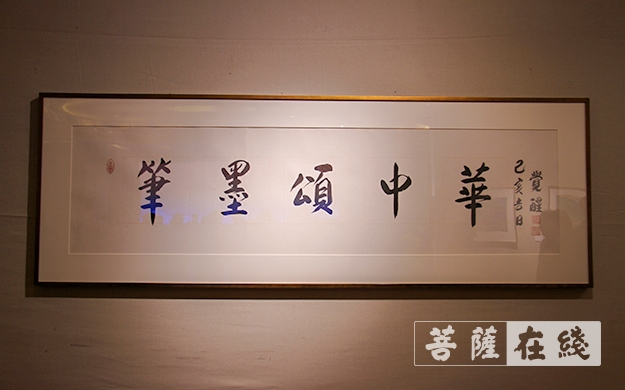 筆墨頌中華
己亥吉日
覺醒
菩薩在綫